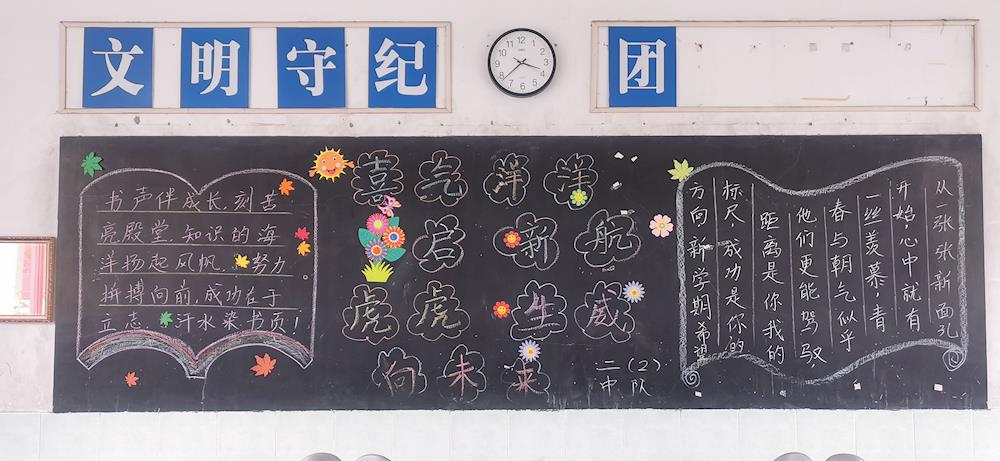 文明守纪
团
书声伴成长,刻苦
亮殿堂.知识的海
洋扬起风帆.努力
拼搏向前,成功在于
立志.汗水染书页!
喜气洋洋
启新航
虎虎生威
向未来
二(2)
中队
从一张张新面孔
开始,心中就有
一丝羡慕,青
春与朝气似乎
他们更能驾驭,
距离是你我的
标尺,成功是你的
方向,新学期希望